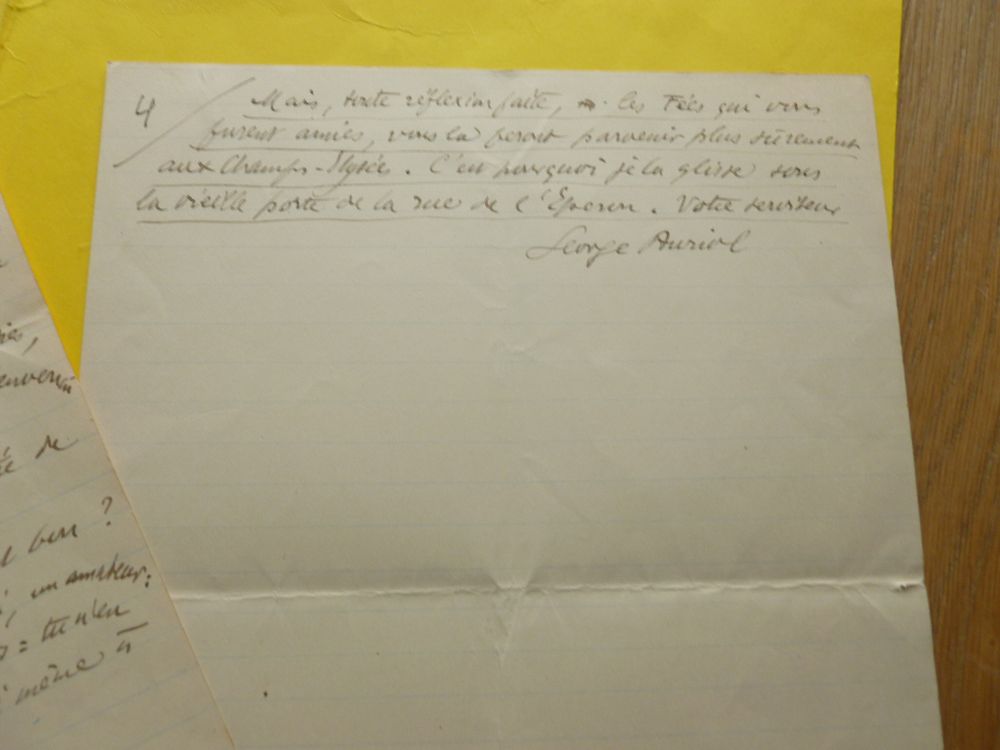 4
Mais, toute réflexion faite, les Fées qui vous
furent amies, vous la feront parvenir plus sûrement
aux Champs-Elysées. C'est pourquoi je la glisse sous
la vieille porte de la rue de l'Eperon. Votre serviteur
George Auriol
de
bon ?
un amateur :
= tu n'en
même